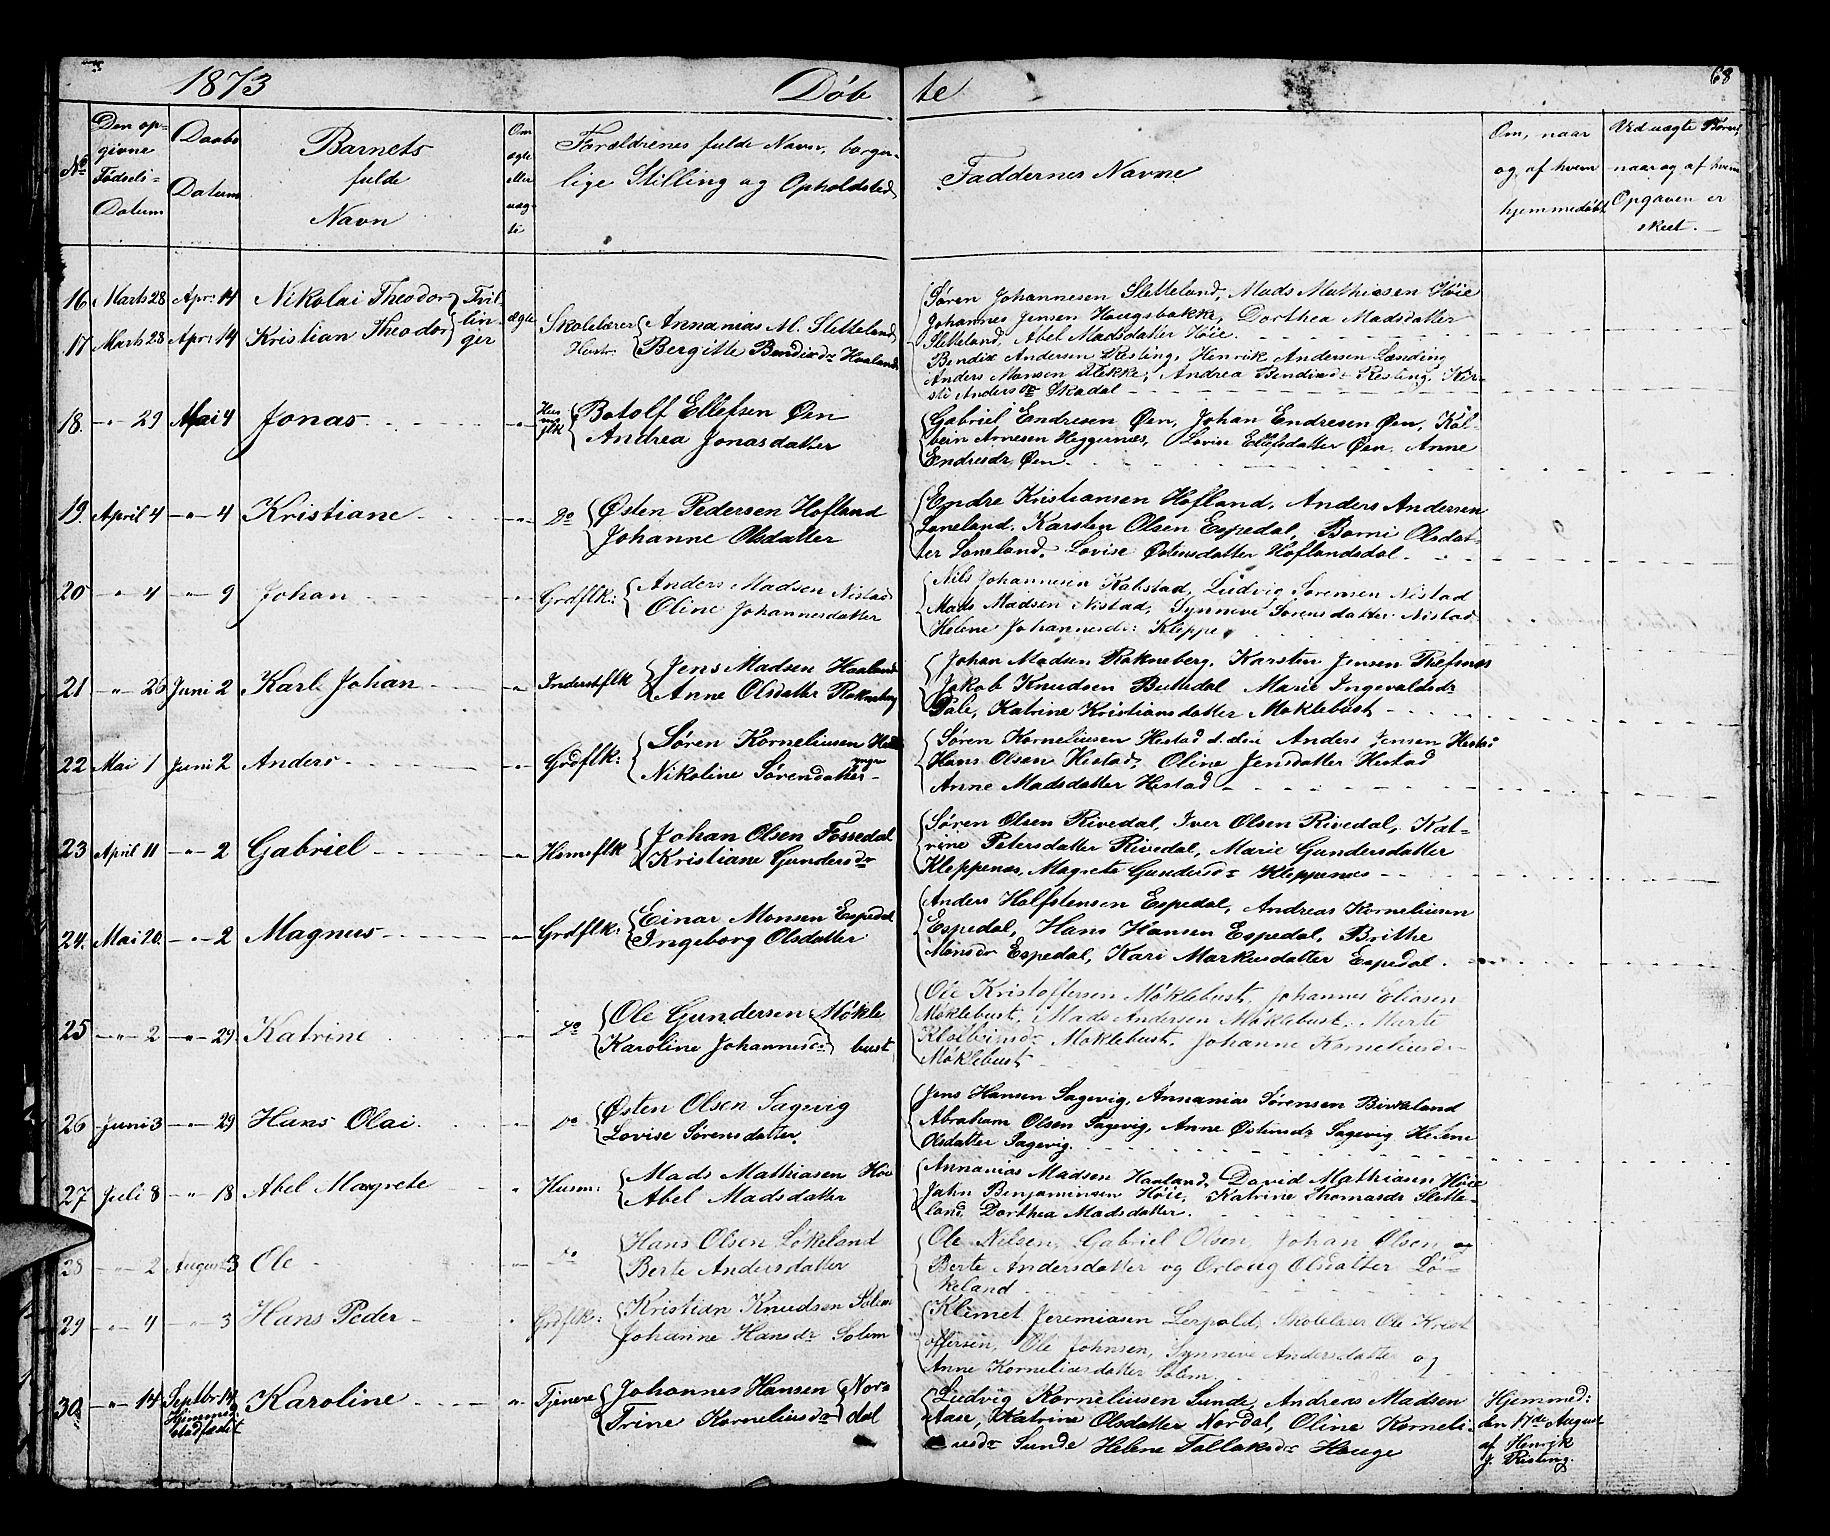 1873 Døbte 68
No
Den opgivne Fødsels-Datum
Daabs Datum
Barnets fulde Navn
Om ægte eller uægte
Forældrenes fulde Navn, borgerlige Stilling og Opholdsted
Faddernes Navne
Om, naar og af hvem hjemmedøbt
Ved uægte Børn, naar og af hvem Opgaven er skeet.
16 Marts 28 Apr: 14 Nikolai Theodor } Tvil-
17 Marts 28 Apr: 14 Kristian Theodor } lin-
ger
ægte
Skolelærer { Annanias M. Sletteland
Hustr: { Bergitte Bendixdr Haaland
Søren Johannesen Sletteland, Mads Mathiesen Höie
Johannes Jensen Haugsbakke, Dorthea Madsdatter
Sletteland, Abel Madsdatter Höie.
Bendix Andersen Risting, Henrik Andersen
Anders Monsen Flekke, Andrea Bendixdr Risting, Kir-
sti Andersdr Skadal
18. -"- 29 Mai 4 Jonas
Hus
flk
Botolf Ellefsen Øen
Andrea Jonasdatter
Gabriel Endresen Øen, Johan Endresen Øen, Kol-
bein Arnesen Heggernæs, Lovise Ellefsdatter Øen, Anne
Endresdr Øen
19. April 4 -"- 4 Kristiane
Do { Østen Pedersen Hofland
Johanne Olsdatter
Endre Kristiansen Hofland, Anders Andersen
Loneland, Karsten Olsen Espedal, Borni Olsdat-
ter Loneland, Lovise Østensdatter Hoflandsdal
20 " 4 " 9 Johan
Grdflk: { Anders Madsen Nistad
Oline Johannesdatter
Nils Johannesen Kalstad, Ludvig Sørensen Nistad
Mads Madsen Nistad, Synneve Sørensdatter Nistad
Helene Johannesdr: Kleppe
21 -"- 26 Juni 2 Karl Johan
Inderstflk { Jens Madsen Haaland
Anne Olsdatter Rakneberg
Johan Madsen Rakneberg, Karsten Jensen
Jakob Knudsen Buttedal Marie Ingevaldsdr
Pale, Katrine Kristiansdatter Moklebust
22 Mai 1 Juni 2 Anders
Grdflk: { Søren Korneliusen
yngre
Nikoline Sørensdatter
Søren Korneliusen Hestad d. ældre Anders Jensen Hestad
Hans Olsen Hestad, Oline Jensdatter Hestad
Anne Madsdatter Hestad
23 April 11 -"- 2 Gabriel
Husmflk { Johan Olsen Fossedal
Kristiane Gundersdr
Søren Olsen Rivedal, Iver Olsen Rivedal, Kat-
rine Petersdatter Rivedal, Marie Gundersdatter
Kleppenæs, Magrete Gundersdr Kleppenæs
24. Mai 20. -"- 2 Magnus
Grdflk: { Einar Monsen Espedal
Ingeborg Olsdatter
Anders Halfstensen Espedal, Andreas Korneliusen
Espedal, Hans Hansen Espedal, Brithe
Monsdr Espedal, Kari Markusdatter Espedal.
25 -"- 2 -"- 29 Katrine
Do { Ole Gundersen } Møkle
Karoline Johannesdr } bust
Ole Kristoffersen Møklebust, Johannes Eliasen
Møklebust, Mads Andersen Møklebust, Marte
Kolbeinsdr Møklebust, Johanne Korneliusdr
Møklebust
26 Juni 3 -"- 29 Hans Olai.
Do { Østen Olsen Sagevig
Lovise Sørensdatter
Jens Hansen Sagevig, Annanias Sørensen Birkeland
Abraham Olsen Sagevig, Anne Østensdr Sagevig Helene
Olsdatter Sagevig.
27 Juli 8 -"- 18 Abel Magrete
Husm: { Mads Mathiasen Höie
Abel Madsdatter
Annanias Madsen Haaland, David Mathiasen Höie
Jahn Benjaminsen Höie, Katrine Thomasdr Slette-
land Dorthea Madsdatter.
28 -"- 2 August 3 Ole
Do { Hans Olsen Løkeland
Berte Andersdatter
Ole Nilsen, Gabriel Olsen, Johan Olsen, og
Berte Andersdatter og Orloug Olsdatter Lø-
keland
29 -"- 4 -"- 3 Hans Peder
Grdflk: { Kristian Knudsen Solem
Johanne Hansdr Solem
Klimet Jeremiasen Leepold, Skolelærer Ole Krist
offersen, Ole Johnsen, Synneve Andersdatter og
Anne Korneliusdatter Solem
30 -"- 14 Septbr 14
Hjemmed.
stadfæst
Karoline
Tjenere { Johannes Hansen { Nor-
Trine Korneliusdr { dal
Ludvig Korneliusen Sunde, Andreas Madsen
Aase, Katrine Olsdatter Nordal, Oline Korneli-
usdr Sunde Helene Tollaksdr Hauge
Hjemmed:
den 17de August
af Henrik
J. Risting.